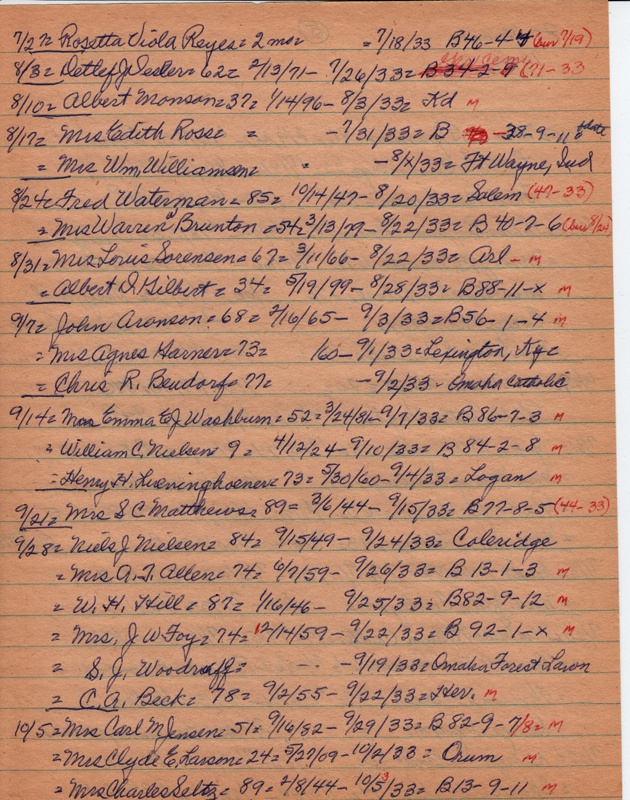 7/27= Rosetta Viola Reyes= 2 mo= =7/18/33 B46-4-4 (bur 7/19)
8/3= Detlef J. = 62= 2/13/71- 7/26/33= (71-33
8/10= Albert Monson= 37= 1/14/96- 8/3/33= Kd m
8/17= Mrs Edith Ross= = -7/31/33= B 38-9-11
= Mrs Wm. Williamson= = -8/x/33= Ft Wayne, Ind
8/24= Fred Waterman= 85= 10/14/47- 8/20/33= Salem (47-33)
= Mrs Warren Brunton =54= 3/13/79- 8/22/33= B 40-7-6 (bur 8/24)
8/31= Mrs Louis Sorensen= 67= 3/11/66- 8/22/33= Arl - m
= Albert D. Gilbert= 34= 5/19/99- 8/28/33= B88-11-x m
9/7= John Aronson= 68= 2/16/65- 9/3/33= B56-1-4 m
= Mrs Agnes Harner= 73= 160- 9/1/33= Lexington, Ky=
= Chris R. Beudorf= 77= -9/2/33- Omaha Catholic
9/14= Mrs Emma E J Washburn= 52= 3/24/81- 9/7/33= B 86-7-3 m
= William C. Nielsen= 9= 4/12/24- 9/10/33= B 84-2-8 m
= Henry H. = 73= 5/30/60- 9/4/33= Logan m
9/21= Mrs S C Matthews= 89= 3/6/44- 9/15/33= B77-8-5 (44-33)
9/28= Niels J Nielsen= 84= 9/15/49- 9/24/33= Coleridge
= Mrs A. T. Allen= 74= 6/7/59- 9/26/33= B 13-1-3 m
= W. H. Hill= 87= 1/16/46- 9/25/33= B82-9-12 m
= Mrs. J W Foy= 74= 12/14/59- 9/22/33= B 92-1-x m
= S. J. Woodruff= - - -9/19/33= Omaha Forest Lawn
= C. A. Beck= 78= 9/2/55- 9/22/33= Her. m
10/5= Mrs Carl M Jensen= 51= 9/16/82- 9/29/33= B 82-9-7/8= m
= Mrs Clyde E. Larson= 24= 5/27/09- 10/2/33= Orum m
= Mrs Charles Seltz= 89= 2/8/44- 10/5/33= B13-9-11 m